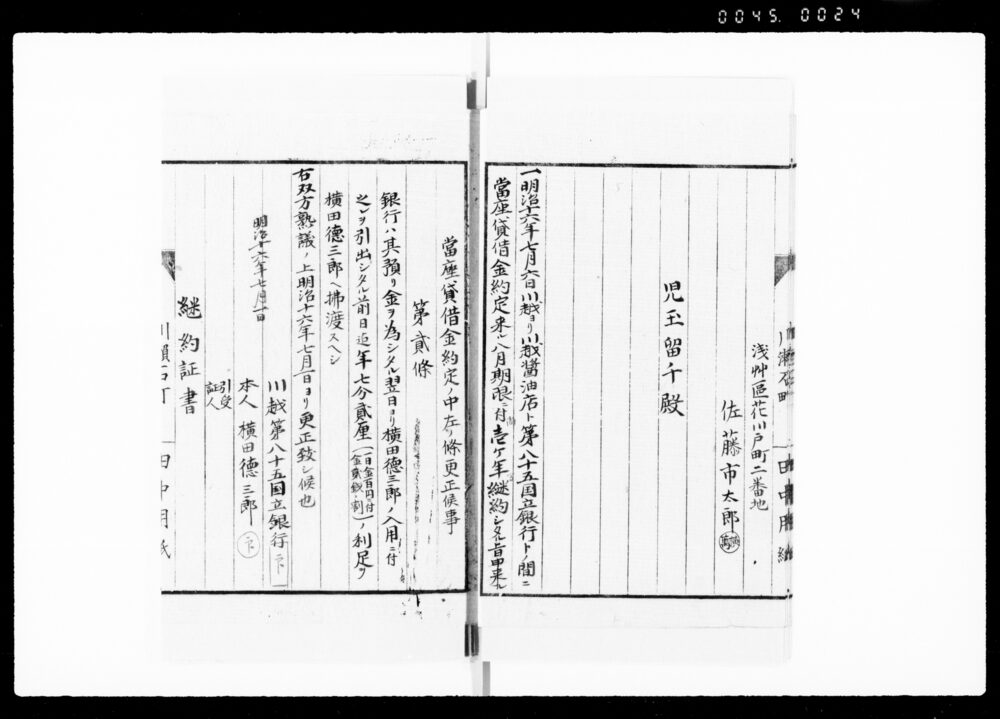 0045. 0024
浅艸區花川戸町二番地
佐藤市太郎
児玉留午殿
一明治十六年七月六日川越ヨリ川越醤油店ト第八十五国立銀行トノ間ニ
當座貸借金約定来ル八月期限ニ付壱ヶ年継約シタル旨申来ル
當座貸借金約定ノ中左ノ條更正候事
第貳條
銀行ハ其預リ金ヲ為シタル翌日ヨリ横田德三郎ノ入用ニ付
之レヲ引出シタル前日迠年七分貳厘(一日金百円ニ付金貳銭ノ割)ノ利足ヲ
横田德三郎ヘ拂渡スヘシ
右双方熟議ノ上明治十六年七月一日ヨリ更正致シ候也
川越第八十五国立銀行 ㊞
明治十六年七月一日
本人 横田德三郎 ㊞
引受証人
継約証書
川瀬石町 田中用紙